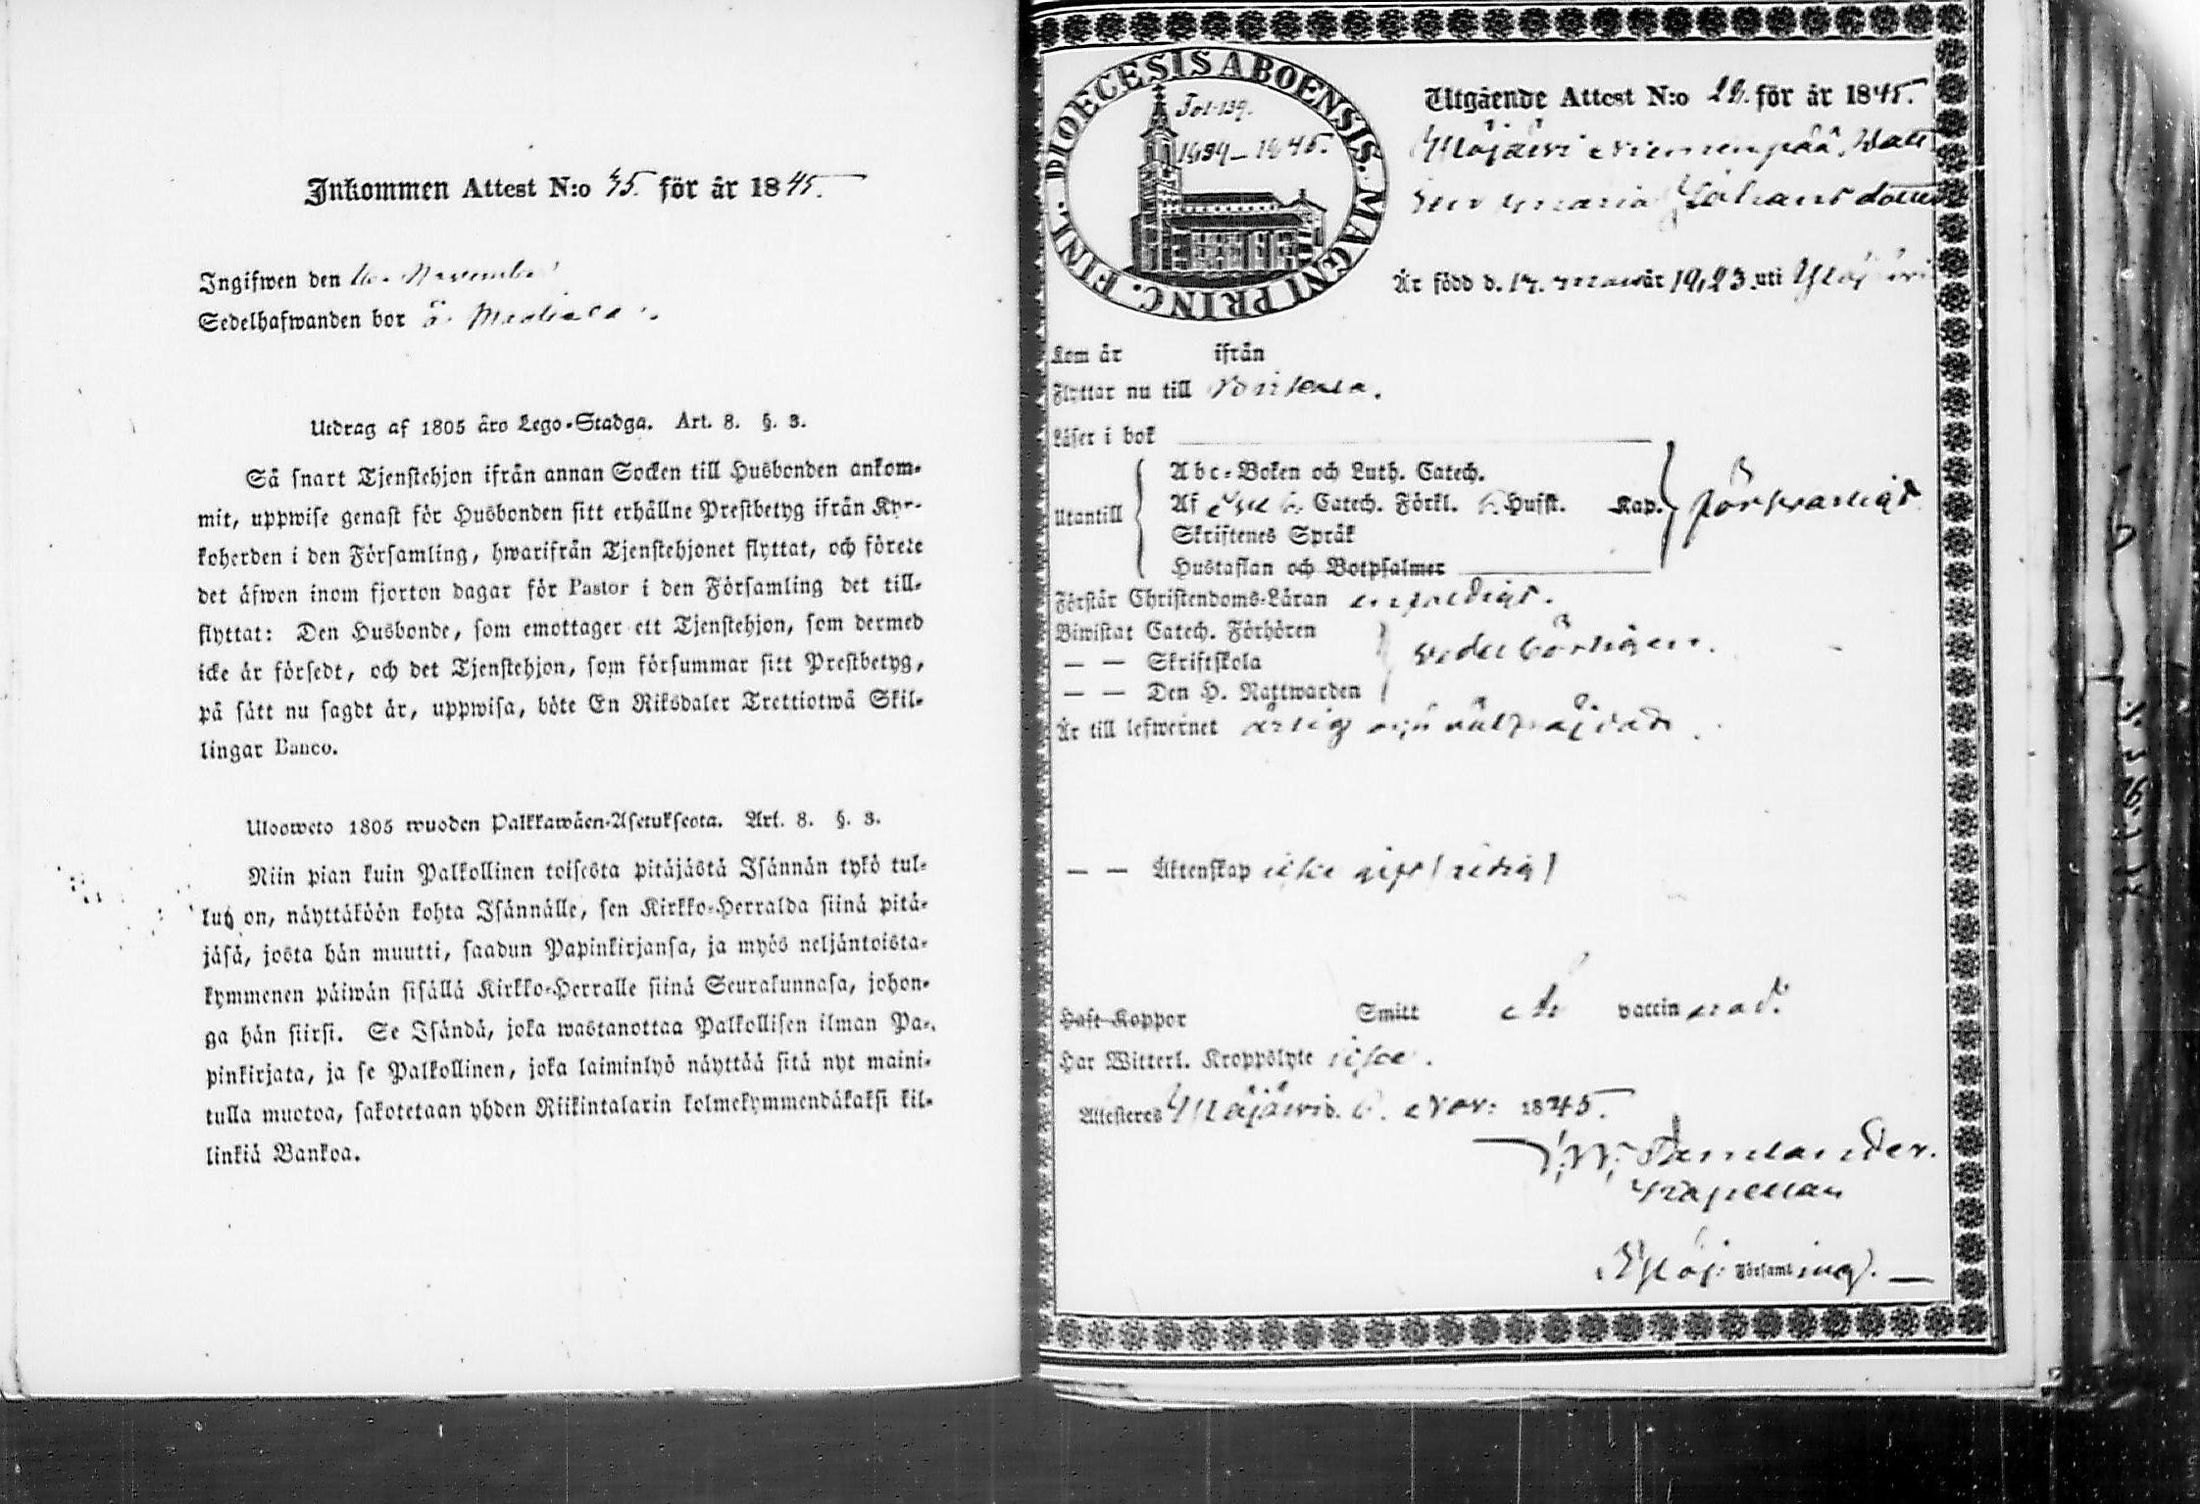 Inkommen Attest N:o 45. för år 1845.
Ingifwen den November
Sedelhafwanden bor å
Utdrag af 1805 års Lego-Stadga. Art. 8. §. 3.
Så snart Tjenstehjon ifrån annan Socken till Husbonden ankom-
mit, uppwise genast för Husbonden sitt erhållne Prestbetyg ifrån Kyr-
koherden i den Församling, hwarifrån Tjenstehjonet flyttat, och förete
det äfwen inom fjorton dagar för Pastor i den Församling det till-
flyttat: Den Husbonde, som emottager ett Tjenstehjon, som dermed
icke är försedt, och det Tjenstehjon, som försummar sitt Prestbetyg,
på sätt nu sagdt är, uppwisa, böte En Riksdaler Trettiotwå Skil-
lingar Banco.
Ulosweto 1805 wuoden Palkkawäen-Asetuksesta. Art. 8. §. 3.
Niin pian kuin Palkollinen toisesta pitäjästä Isännän tykö tul-
lut on, näyttäköön kohta Isännälle, sen Kirkko-Herralda siinä pitä-
jäsä, josta hän muutti, saadun Papinkirjansa, ja myös neljäntoista-
kymmenen päiwän sisällä Kirkko-Herralle siinä Seurakunnasa, johon-
ga hän siirsi. Se Isändä, joka wastanottaa Palkollisen ilman Pa-
pinkirjata, ja se Palkollinen, joka laiminlyö näyttää sitä nyt maini-
tulla muotoa, sakotetaan yhden Riikintalarin kolmekymmendäkaksi kil-
linkiä Bankoa.
DIOECESIS ABOENSIS. MAGNI PRINC. FINL.
Fol. 139.
1839–1845.
Utgående Attest N:o 20. för år 1845.
Ylöjärvi Niemenpää,
Maria Johansdotter
Är född d. 17. år 1823. uti Ylöjärvi
Kom år ifrån
Flyttar nu till
Läser i bok
Utantill
Abc-Boken och Luth. Catech.
Af Catech. Förkl. Husst. Kap. försvarligt
Skriftenes Språk
Hustaflan och Botpsalmer
Förstår Christendoms-Läran enfaldigt.
Biwistat Catech. Förhören
— — Skriftskola vederbörligen.
— — Den H. Nattwarden
Är till lefwernet ärlig och välfräjdad.
— — Äktenskap icke gift (ledig)
Haft Koppor Smitt vaccinerad.
Har Witterl. Kroppslyte icke.
Attesteras Ylöjärvi d. 6. Nov: 1845.
Kapellan
Ylöj: Församling.